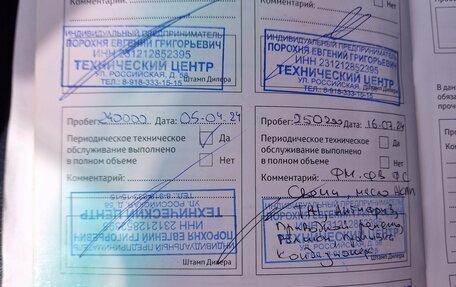 Комментарий:
ИНДИВИДУАЛЬНЫЙ ПРЕДПРИНИМАТЕЛЬ
ПОРОХНЯ ЕВГЕНИЙ ГРИГОРЬЕВИЧ
ИНН 231212852395
ТЕХНИЧЕСКИЙ ЦЕНТР
УЛ. РОССИЙСКАЯ, Д. 58
ТЕЛ.: 8-918-333-15-15
Штамп Дилера
Комментарий:
ИНДИВИДУАЛЬНЫЙ ПРЕДПРИНИМАТЕЛЬ
ПОРОХНЯ ЕВГЕНИЙ ГРИГОРЬЕВИЧ
ИНН 231212852395
ТЕХНИЧЕСКИЙ ЦЕНТР
УЛ. РОССИЙСКАЯ, Д. 58
ТЕЛ.: 8-918-333-15-15
Штамп Дилера
Пробег: 240000 Дата: 05.04.24
Периодическое техническое
обслуживание выполнено
в полном объеме
Да
Нет
Комментарий:
ТЕЛ.: 8-918-333-15-15
УЛ. РОССИЙСКАЯ, Д. 58
ТЕХНИЧЕСКИЙ ЦЕНТР
ИНН 231212852395
ПОРОХНЯ ЕВГЕНИЙ ГРИГОРЬЕВИЧ
ИНДИВИДУАЛЬНЫЙ ПРЕДПРИНИМАТЕЛЬ
Штамп Дилера
Пробег: 250200 Дата: 16.07.24
Периодическое техническое
обслуживание выполнено
в полном объеме
Да
Нет
Комментарий: ФМ. ФВ ФС
Свечи, масло АКПП
ремень
кондиционера
Штамп Дилера